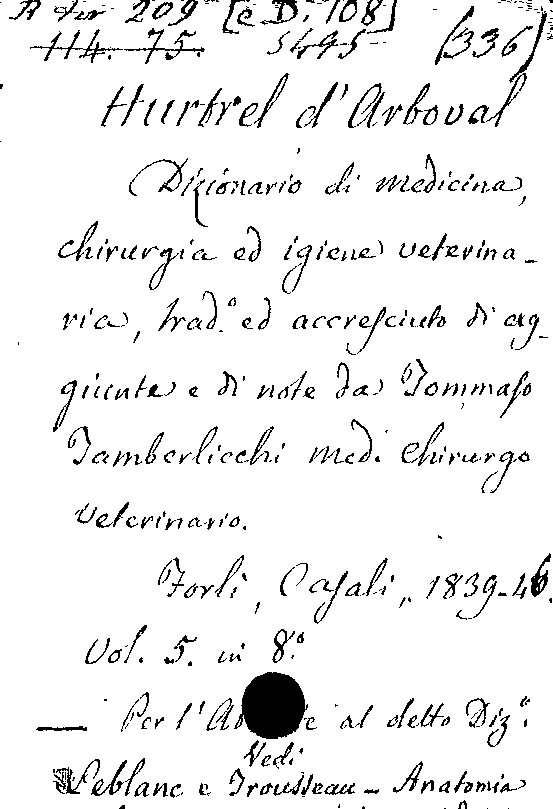 209 [e D. 108]
114. 75. 5495 (336)
Hurtrel d'Arboval
Dizionario di medicina,
chirurgia ed igiene veterina-
ria, trad.º ed accresciuto di ag-
giunte e di note da Tommaso
Tamberlicchi medi Chirurgo
veterinario.
Forlì, Casali, 1839-46.
Vol. 5. in 8.º
— Per l'A e al detto Diz.º
Vedi
Leblanc e Trousseau - Anatomia